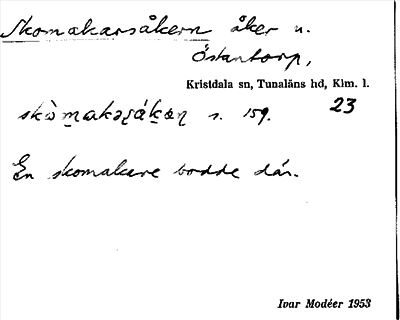 Skomakarsåkern åker u.
Östantorp,
Kristdala sn, Tunaläns hd, Klm. l.
skò̱m̱akəʂák̠əɳ s. 159. 23
En skomakare bodde där.
Ivar Modéer 1953